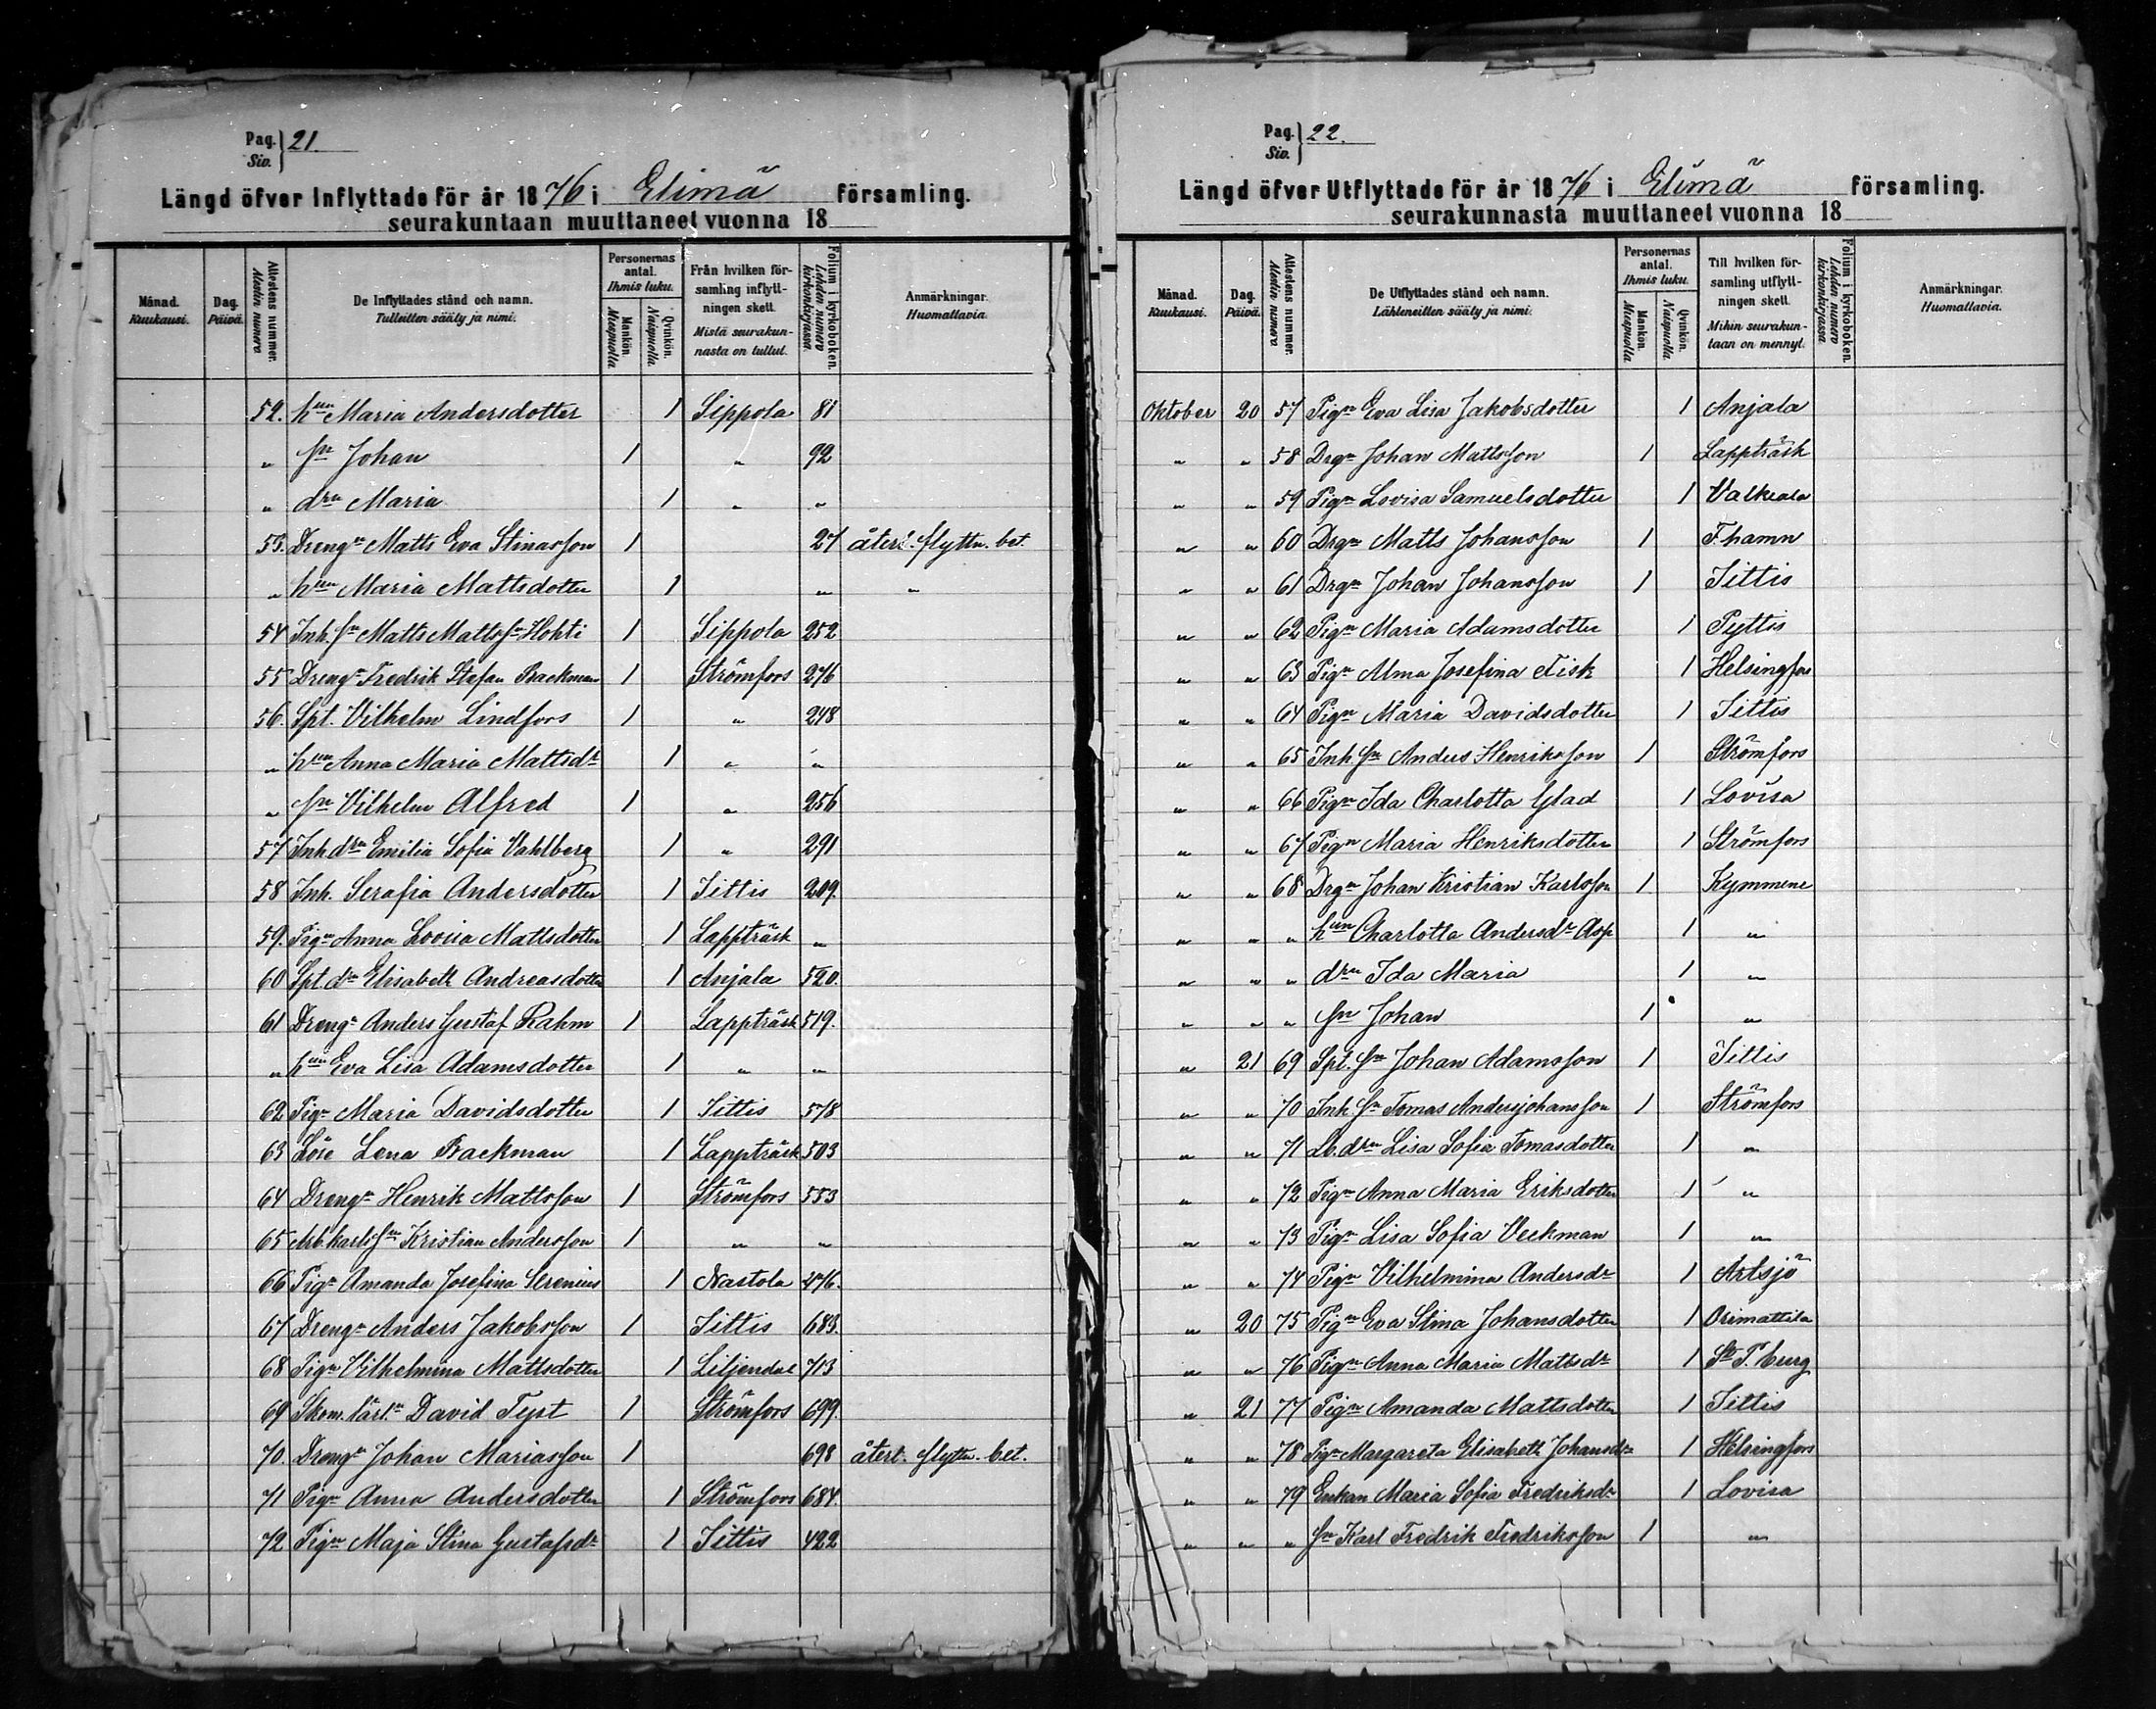 Pag. 21.
Siv.
Längd öfver Inflyttade för år 1876 i Elimä församling.
seurakuntaan muuttaneet vuonna 18
Månad. Kuukausi.
Dag. Päivä.
Attestens nummer. Mestin numero
De Inflyttades stånd och namn. Tulleitten sääty ja nimi.
Personernas antal. Ihmis luku.
Mankön. Miespuolia
Qvinkön. Naispuolia
Från hvilken församling inflyttningen skett. Mistä seurakunnasta on tullut.
Folium i kyrkoboken. Lehden numero kirkonkirjassa.
Anmärkningar. Huomattavia.
52. hun Maria Andersdotter 1 Sippola 81
„ sn Johan 1 „ 92
„ drn Maria 1 „ „
53. Drengn Matts Eva Stinasson 1 27 återl. flyttn. bet.
„ hun Maria Mattsdotter 1 „ „
54 Inh. sn Matts Mattss:n Hohti 1 Sippola 252
55 Drengn Fredrik Stefan Backman 1 Strömfors 276
56. Spt. Vilhelm Lindfors 1 „ 248
„ hun Anna Maria Mattsdr 1 „ „
„ sn Vilhelm Alfred 1 „ 256
57 Inh drn Emilia Sofia Vahlberg 1 „ 291
58 Inh. Serafia Andersdotter 1 Iittis 209.
59. Pign Anna Lovisa Mattsdotter 1 Lappträsk „
60 Spt. drn Elisabeth Andreasdotter 1 Anjala 520.
61 Drengn Anders Gustaf Rahm 1 Lappträsk 519.
„ hun Eva Lisa Adamsdotter 1 „ „
62 Pign Maria Davidsdotter 1 Iittis 578
63 Löse Lena Backman 1 Lappträsk 503
64 Drengn Henrik Mattsson 1 Strömfors 553
65 Arb. karls sn Kristian Andersson 1 „ „
66 Pign Amanda Josefina Serenius 1 Nastola 276.
67 Drengn Anders Jakobsson 1 Iittis 683.
68 Pign Vilhelmina Mattsdotter 1 Liljendal 713
69 Skom. lärln David Tyst 1 Strömfors 699.
70. Drengn Johan Mariasson 1 698 återl. flyttn. bet.
71 Pign Anna Andersdotter 1 Strömfors 684.
72 Pign Maja Stina Gustafsdr 1 Iittis 422
Pag. 22.
Siv.
Längd öfver Utflyttade för år 1876 i Elimä församling.
seurakunnasta muuttaneet vuonna 18
Månad. Kuukausi.
Dag. Päivä.
Attestens nummer. Mestin numero
De Utflyttades stånd och namn. Lähteneitten sääty ja nimi.
Personernas antal. Ihmis luku.
Mankön. Miespuolia
Qvinkön. Naispuolia
Till hvilken församling utflyttningen skett. Mihin seurakuntaan on mennyt.
Folium i kyrkoboken. Lehden numero kirkonkirjassa.
Anmärkningar. Huomattavia.
Oktober 20 57 Pign Eva Lisa Jakobsdotter 1 Anjala
„ „ 58 Drgn Johan Mattsson 1 Lappträsk
„ „ 59 Pign Lovisa Samuelsdotter 1 Valkeala
„ „ 60 Drgn Matts Johansson 1 F:hamn
„ „ 61 Drgn Johan Johansson 1 Iittis
„ „ 62 Pign Maria Adamsdotter 1 Pyttis
„ „ 63 Pign Alma Josefina Fisk 1 Helsingfors
„ „ 64 Pign Maria Davidsdotter 1 Iittis
„ „ 65 Inh. sn Anders Henriksson 1 Strömfors
„ „ 66 Pign Ida Charlotta Glad 1 Lovisa
„ „ 67 Pign Maria Henriksdotter 1 Strömfors
„ „ 68 Drgn Johan Kristian Karlsson 1 Kymmene
„ „ „ hun Charlotta Andersdr Asp 1 „
„ „ „ drn Ida Maria 1 „
„ „ „ sn Johan 1 „
„ 21 69 Spt. sn Johan Adamsson 1 Iittis
„ „ 70 Inh. sn Tomas Andersjohansson 1 Strömfors
„ „ 71 Lb. drn Lisa Sofia Tomasdotter 1 „
„ „ 72 Pign Anna Maria Eriksdotter 1 „
„ „ 73 Pign Lisa Sofia Veckman 1 „
„ „ 74 Pign Vilhelmina Andersdr 1 Artsjö
„ 20 75 Pign Eva Stina Johansdotter 1 Orimattila
„ „ 76 Pign Anna Maria Mattsdr 1 St P.burg
„ 21 77 Pign Amanda Mattsdotter 1 Iittis
„ „ 78 Pign Margareta Elisabeth Johansdr 1 Helsingfors
„ „ 79 Enkan Maria Sofia Fredriksdr 1 Lovisa
„ „ „ sn Karl Fredrik Fredriksson 1 „